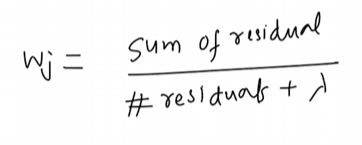 wj = sum of residual
# residuals + λ